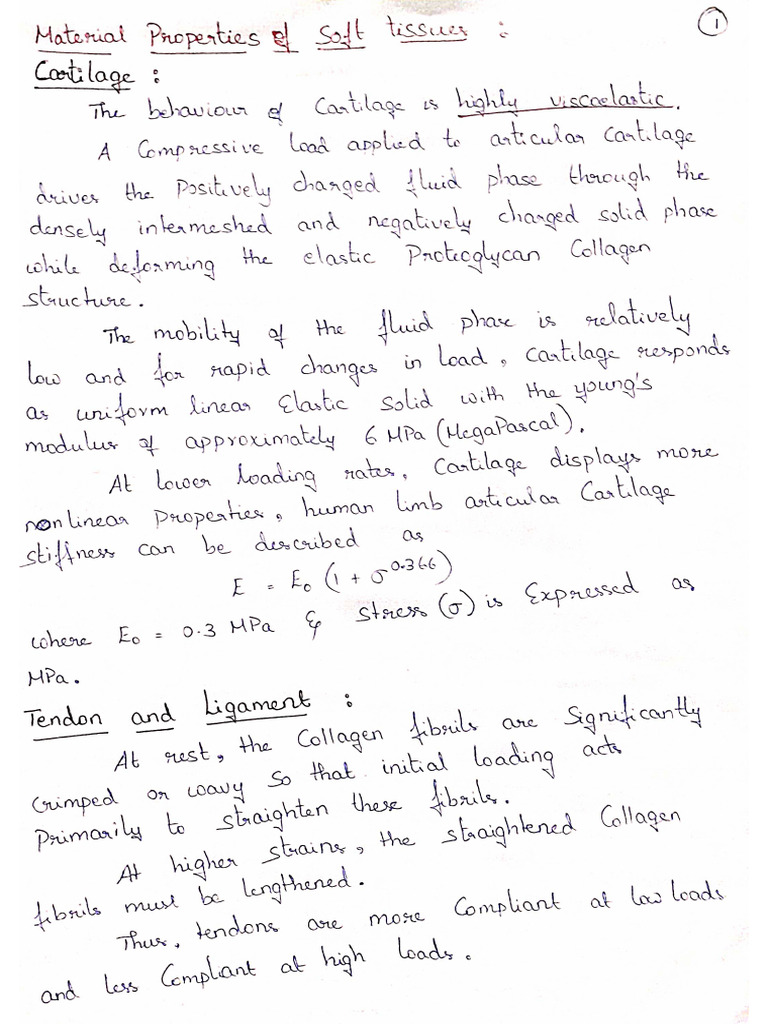 Material Properties of Soft tissues :
1
Cartilage :
The behaviour of Cartilage is highly viscoelastic.
A Compressive load applied to articular cartilage
drives the Positively charged fluid phase through the
densely intermeshed and negatively charged solid phase
while deforming the elastic Proteoglycan Collagen
structure.
The mobility of the fluid phase is relatively
low and for rapid changes in load, cartilage responds
as uniform linear Elastic Solid with the young's
modulus of approximately 6 MPa (MegaPascal).
At lower loading rates, Cartilage displays more
nonlinear Properties, human limb articular Cartilage
stiffness can be described as
E = E₀ (1 + σ^0.366)
where E₀ = 0.3 MPa & Stress (σ) is Expressed as
MPa.
Tendon and Ligament :
At rest, the Collagen fibrils are Significantly
Crimped or wavy so that initial loading acts
Primarily to straighten these fibrils.
At higher strains, the straightened Collagen
fibrils must be lengthened.
Thus, tendons are more Compliant at low loads
and less Compliant at high loads.